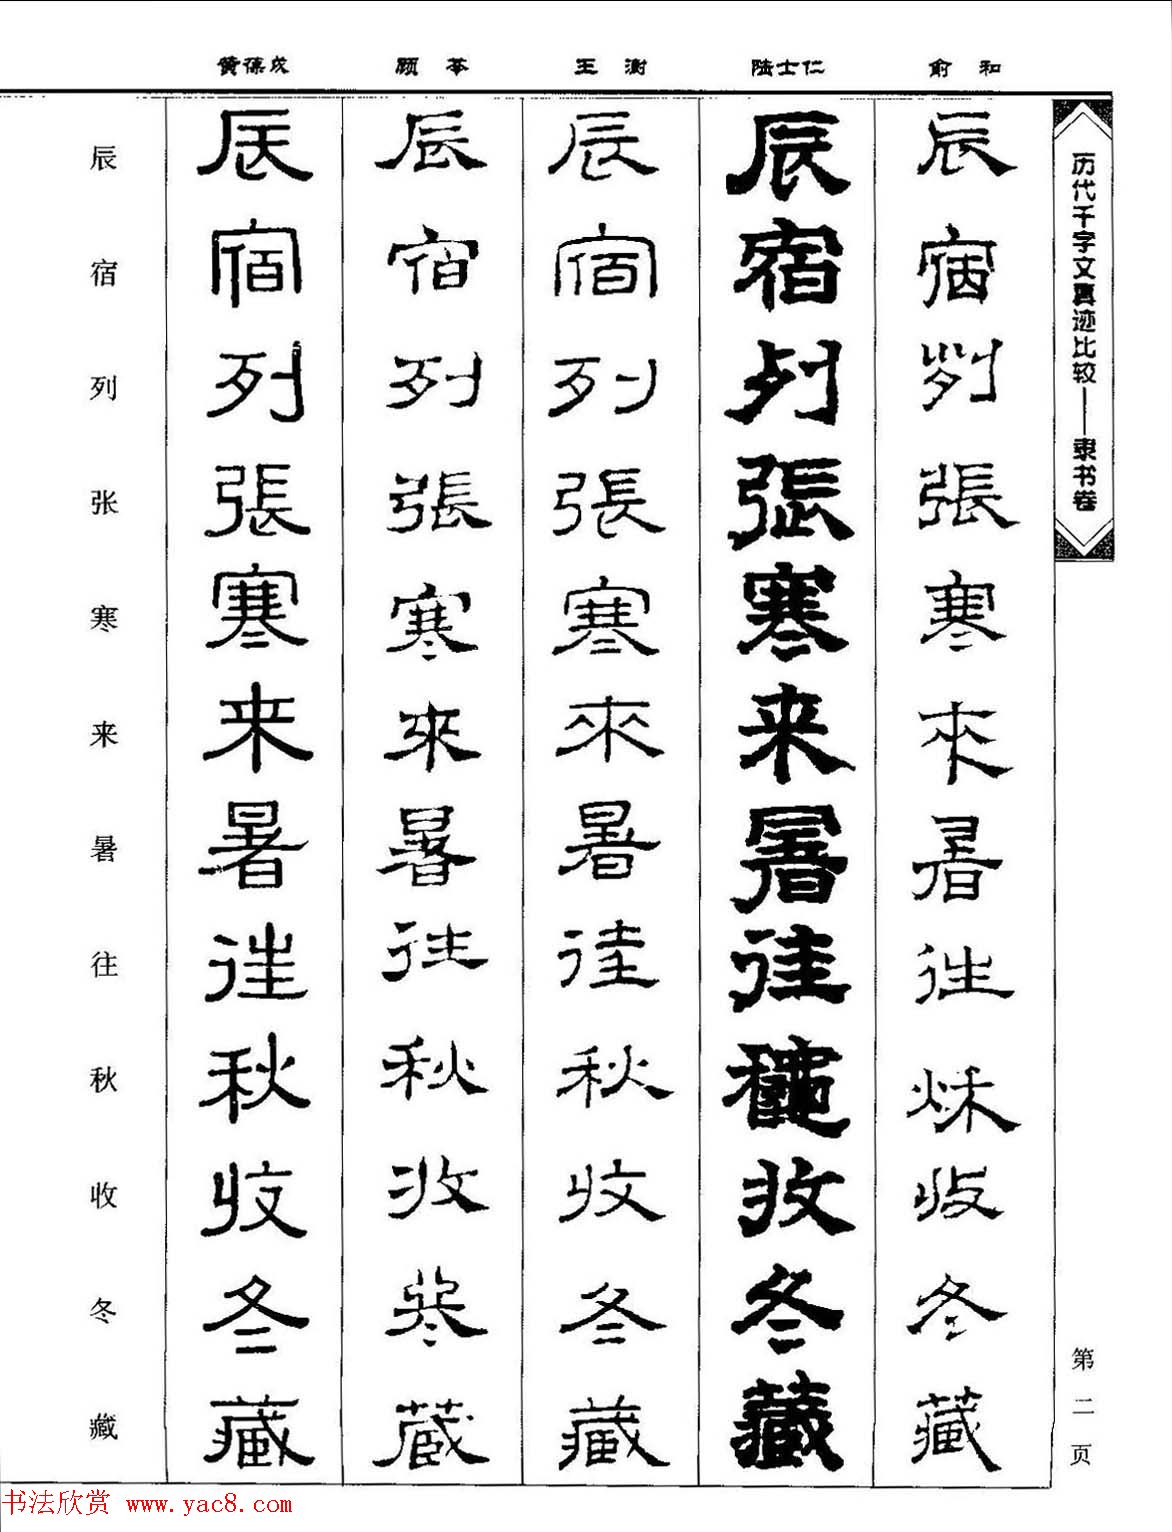 黄葆戊 顾苓 王澍 陆士仁 俞和
历代千字文真迹比较——隶书卷
辰宿列張寒来暑往秋收冬藏
辰宿列張寒来暑往秋收冬藏
辰宿列張寒來暑往秋收冬藏
辰宿列張寒來暑往秋收冬藏
辰宿列張寒来暑往秋收冬藏
辰宿列张寒来暑往秋收冬藏
第二页
书法欣赏 www.yac8.com